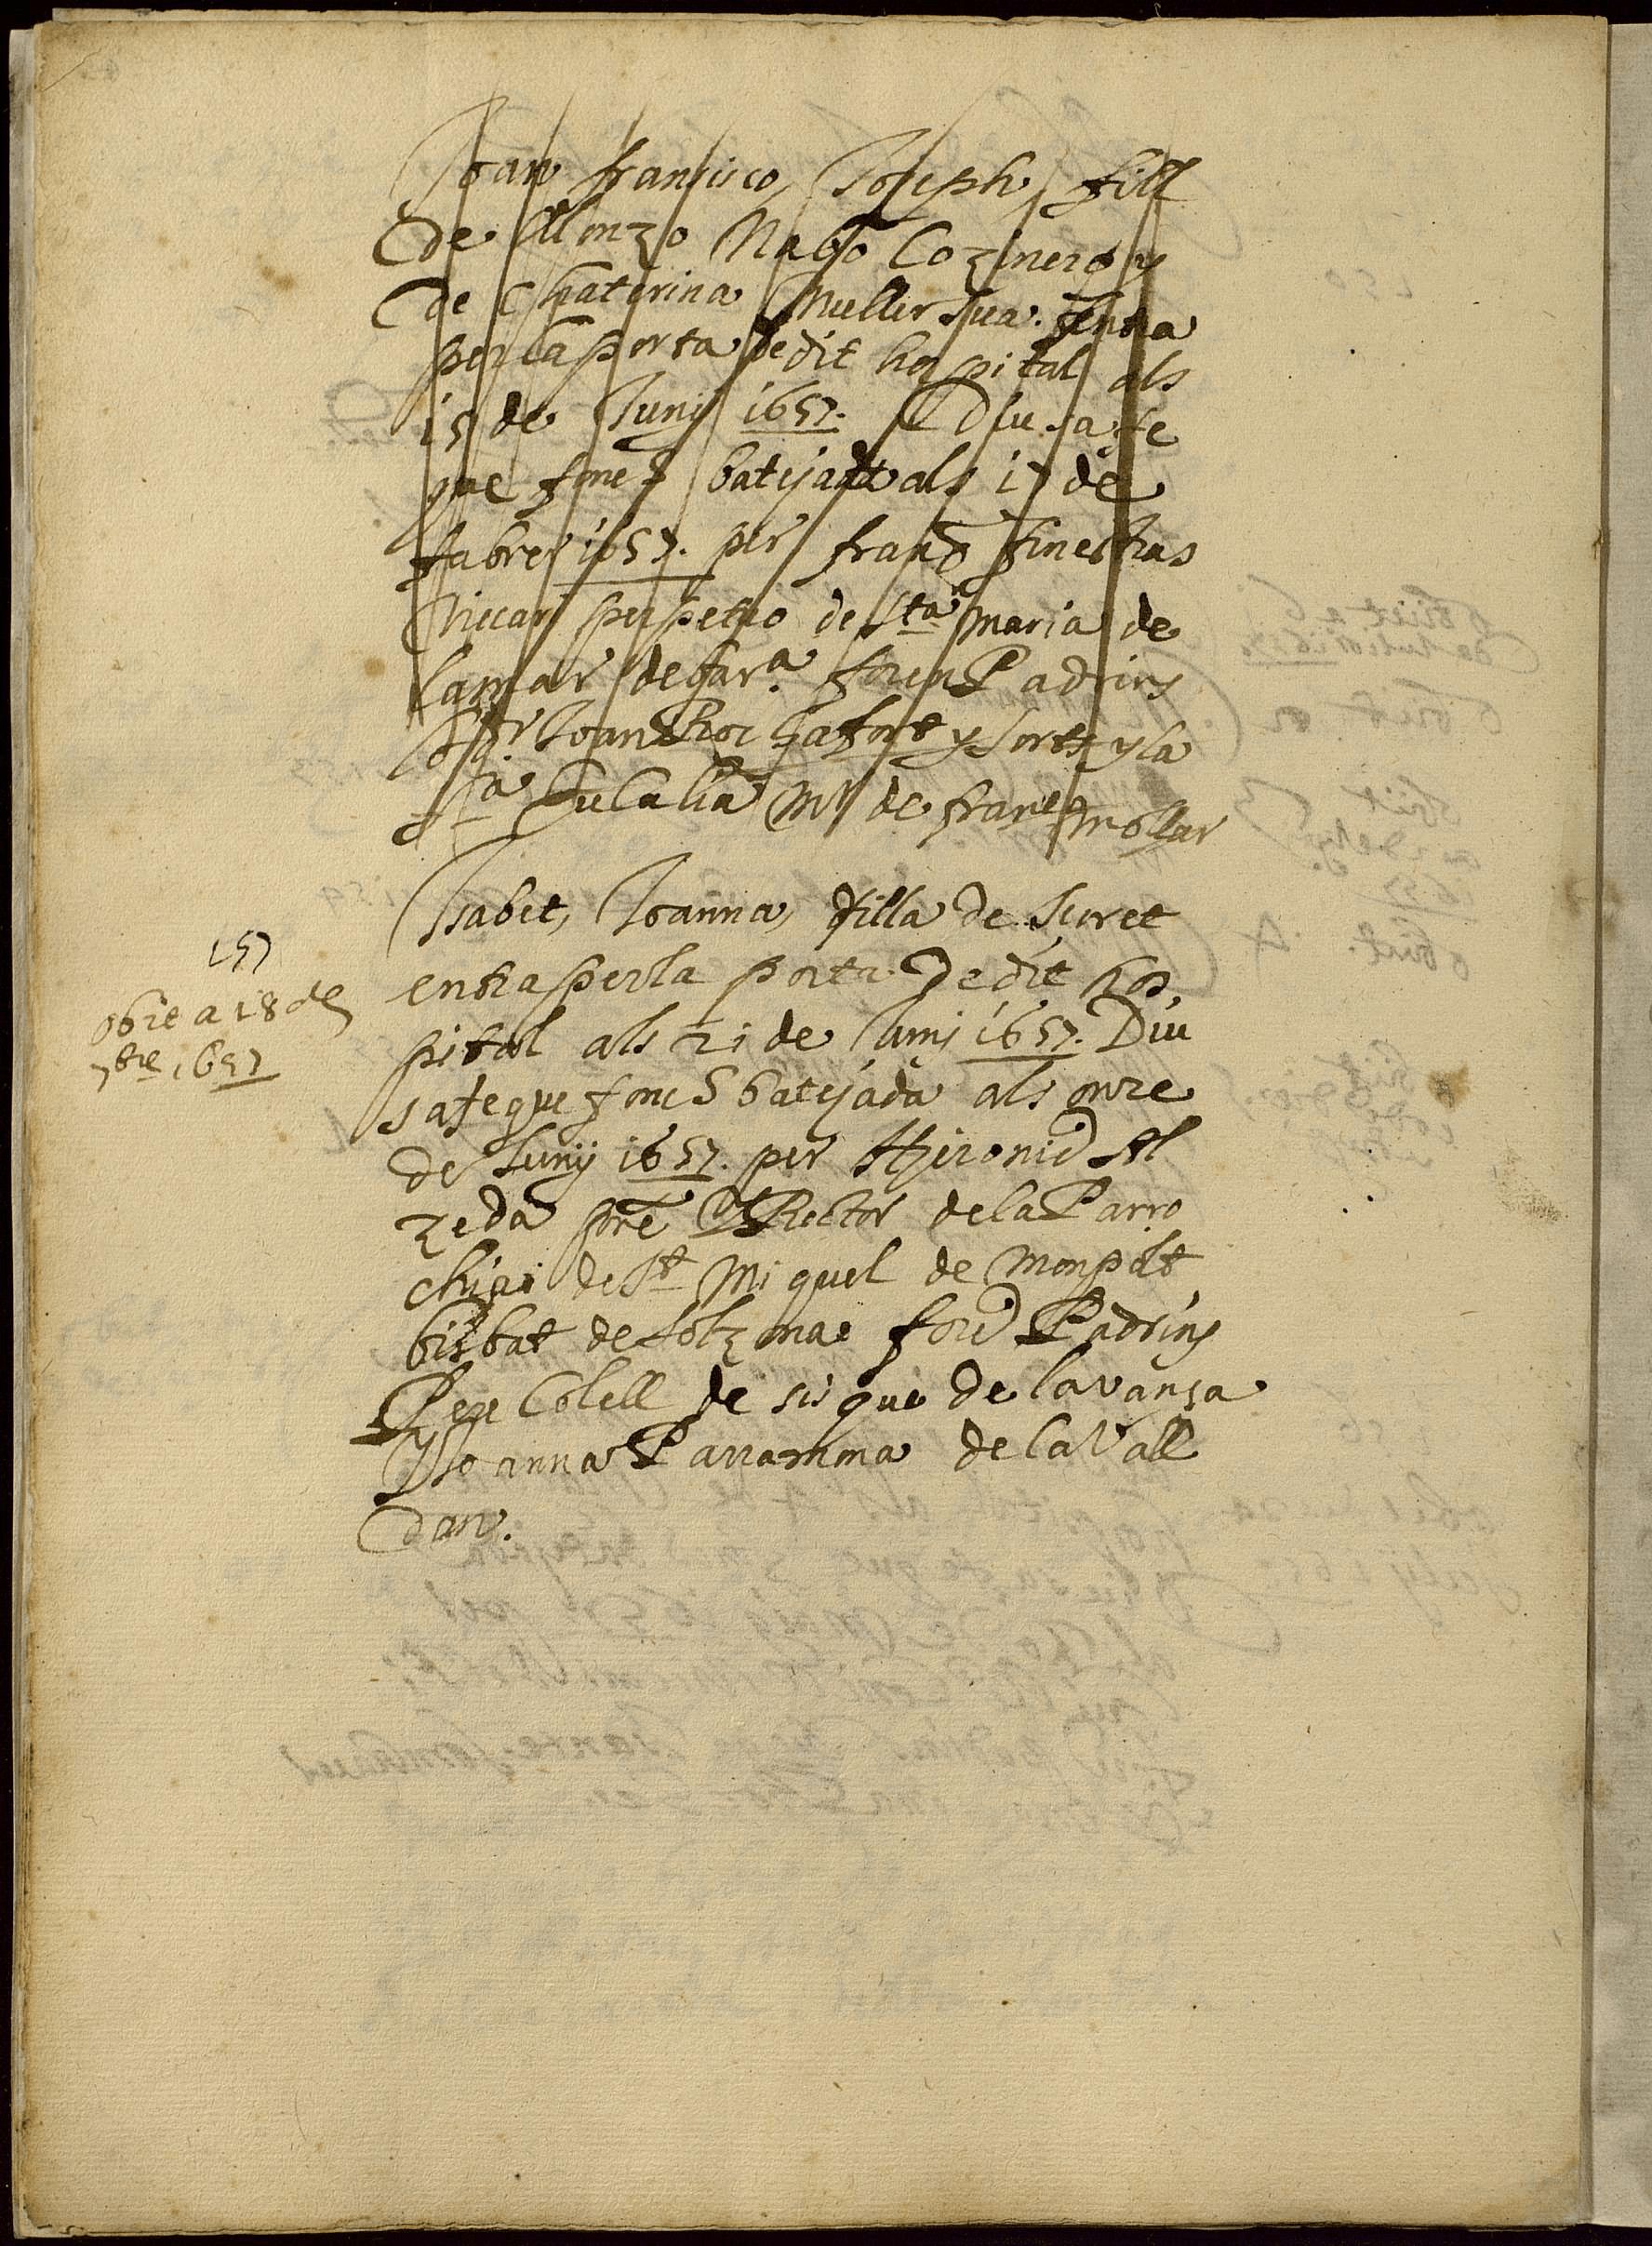 Joan fransisco, Joseph, fill
de Alonzo Nabo Cozinero y
de Chaterina Muller sua. Entra
per la porta de dit hospital als
15 de Juny 1657. Diu sa fe
que fonc batejat als 17 de
fabrer 1657. per franc finestras
Viccari perpetuo de Sta Maria de
la mar de bar.a foren Padrins
Joan Roc hafort y sorts y la
Sra Eulalia Mr de franc mollar
Isabet, Joanna, filla de Seoret
entra per la porta de dit hos,
pital als 21 de Juny 1657. Diu
sa fe que fonc batejada als onze
de Juny 1657. per Hieronid Al
zeda pre y Rector de la Parro
chia de St Miquel de Monpolt
bisbat de solzona foren Padrins
Pere Colell de sisquer de lavansa
y Joanna Parramma de la Vall
dan.
157
obit a 18 de
7bre 1657